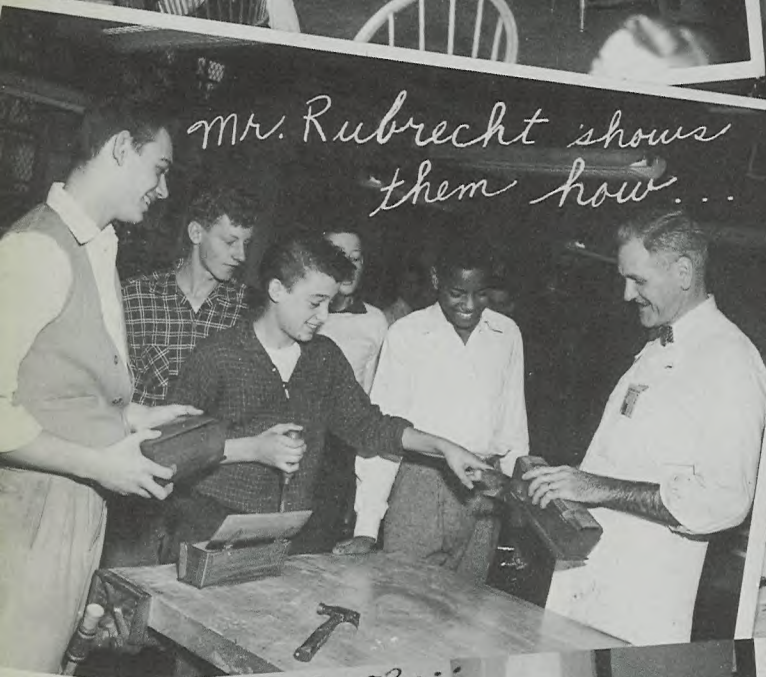 Mr. Rubrecht shows
them how...